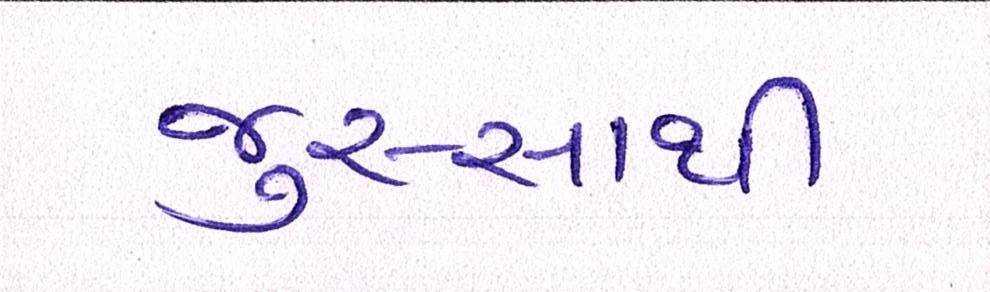 જુસ્સાથી